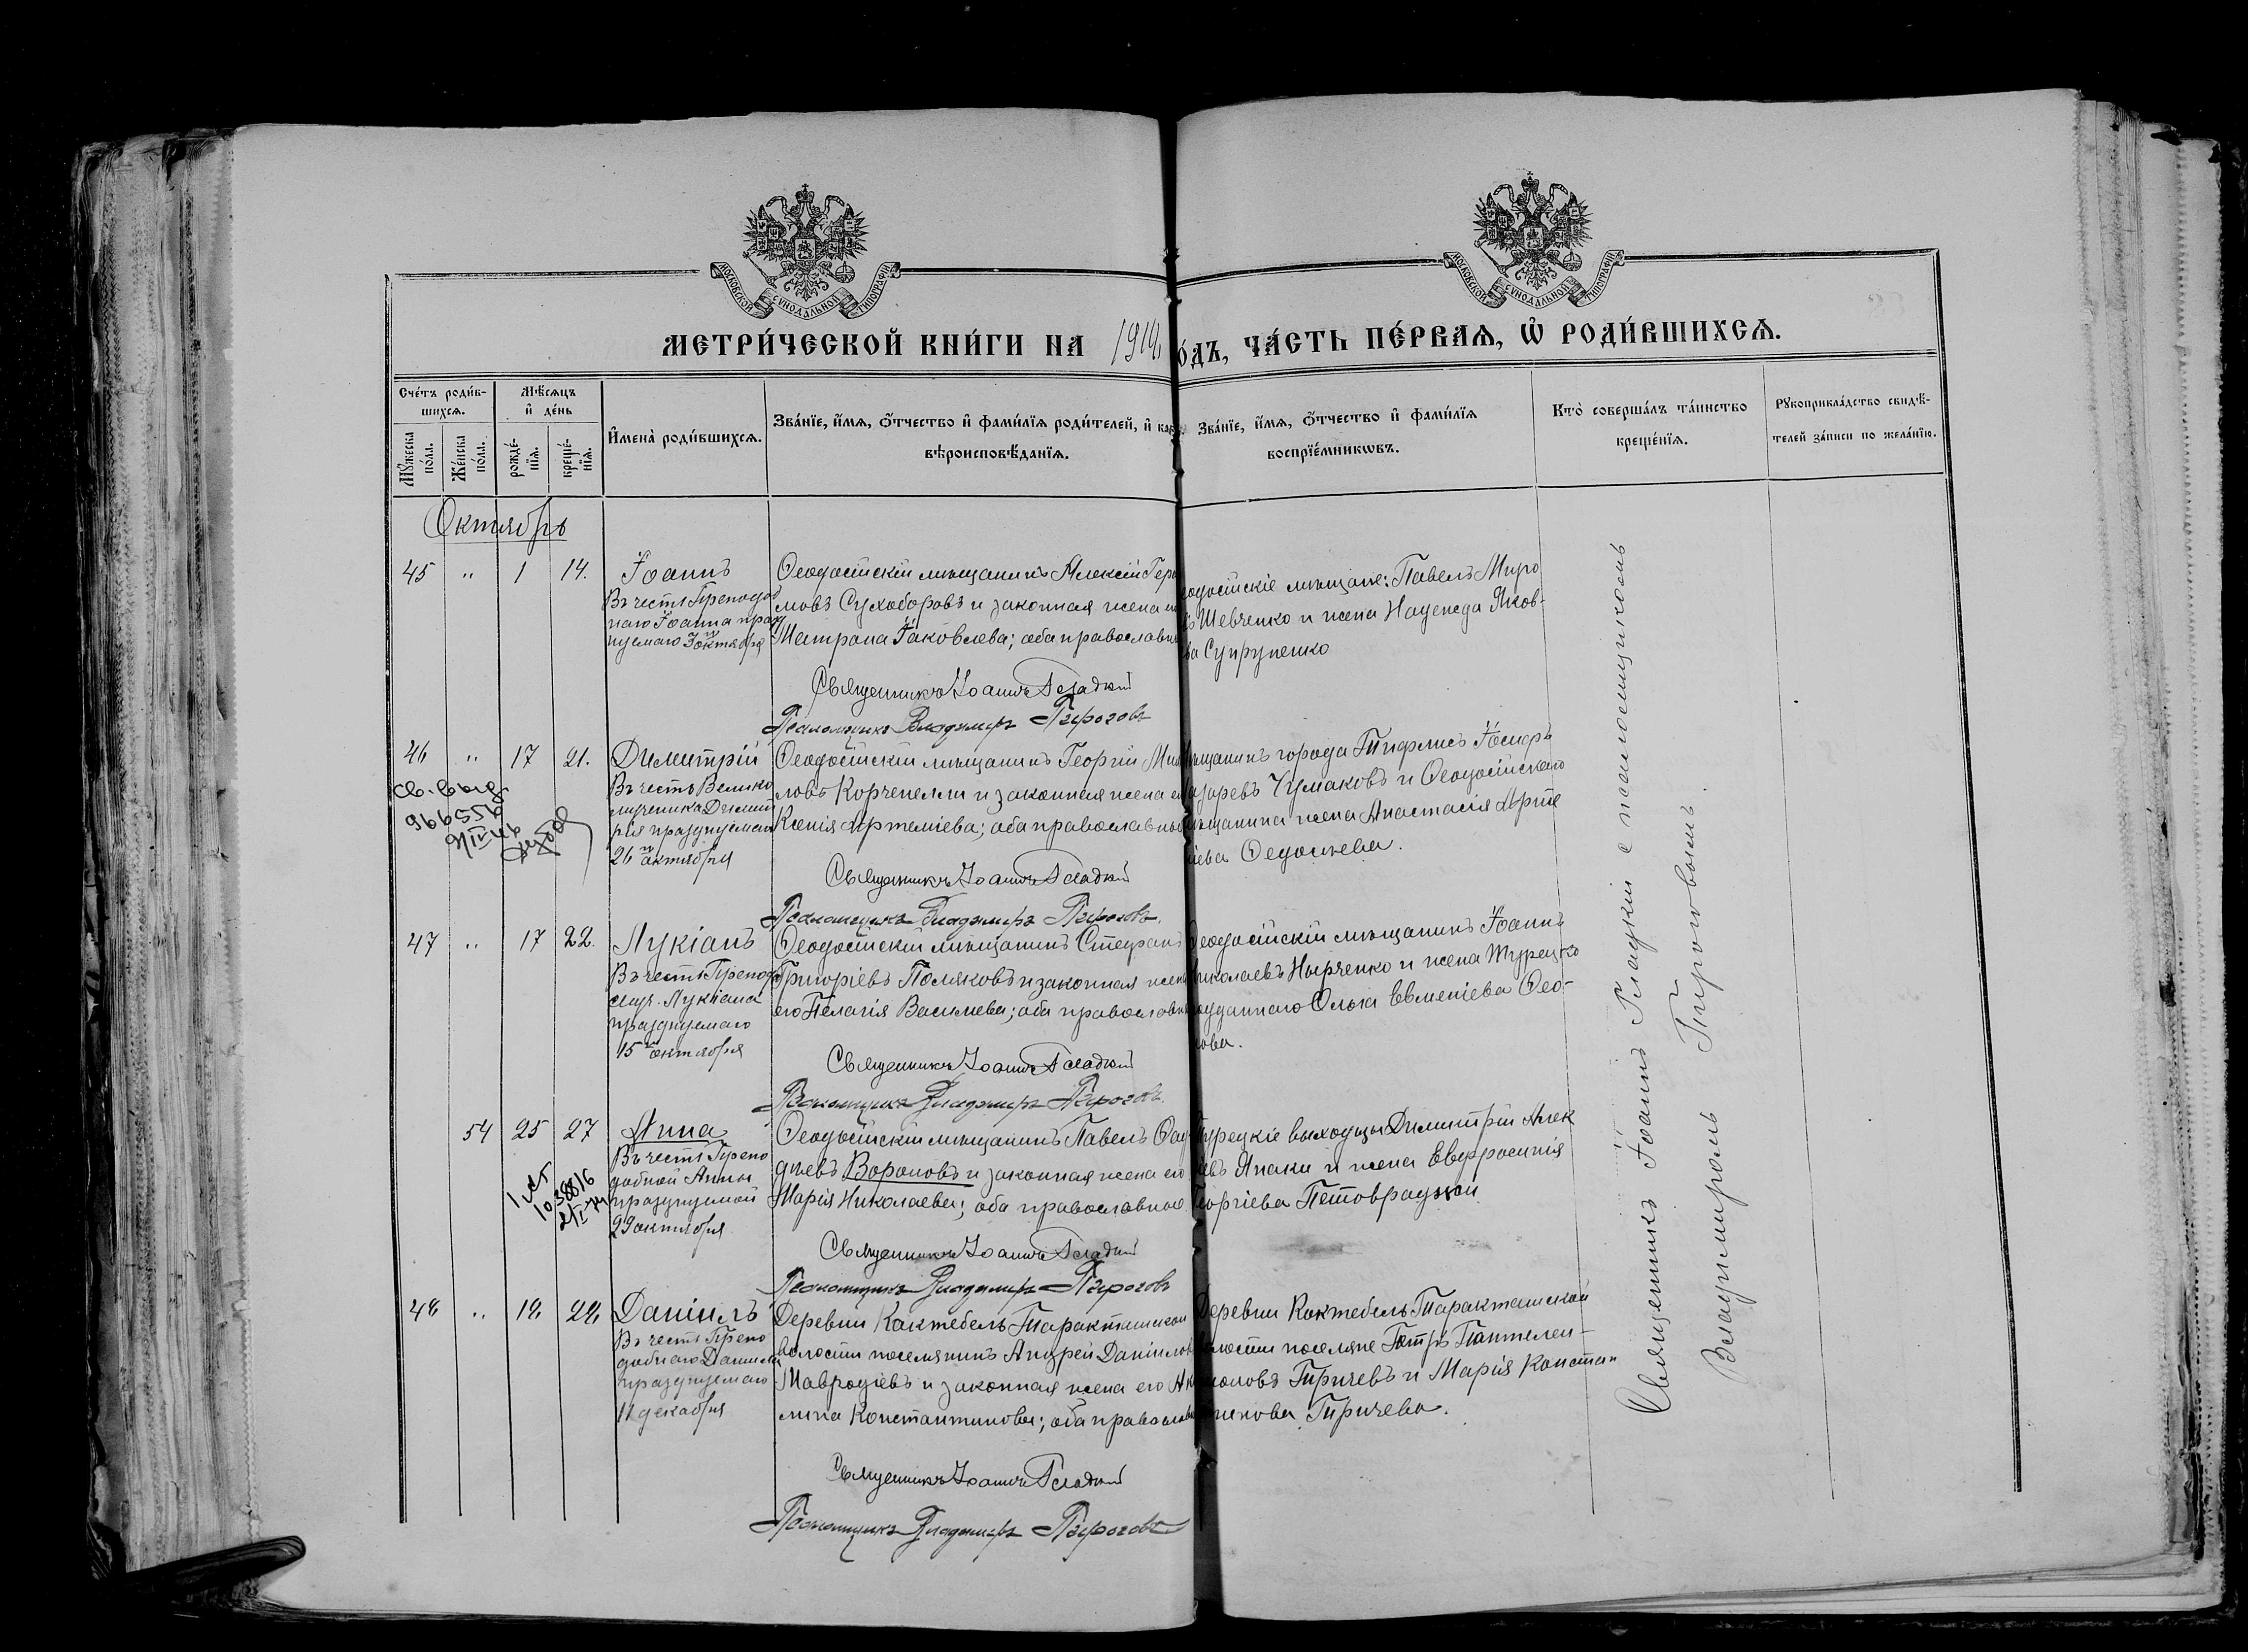 МОСКОВСКОЙ СУНОДАЛЬНОЙ ТИПОГРАФІИ
МОСКОВСКОЙ СУНОДАЛЬНОЙ ТИПОГРАФІИ
МЕТРИ́ЧЕСКОЙ КНИ́ГИ НА
о́дъ, ЧА́СТЬ ПЕ́РВАѦ, Ѡ҆ РОДИ́ВШИХСѦ.
Сче́тъ роди́в-
шихсѧ.
Мꙋ́жеска по́ла.
Же́нска по́ла.
Мѣ́сѧцъ
и҆ де́нь
рожде́-
нїѧ.
креще́-
нїѧ.
И҆мена̀ роди́вшихсѧ.
Зва́нїе, и҆́мѧ, ѻ҆́тчество и҆ фами́лїѧ роди́телей, и҆ как
вѣроисповѣ́данїѧ.
Зва́нїе, и҆́мѧ, ѻ҆́тчество и҆ фами́лїѧ
воспрїе́мникѡвъ.
Кто̀ соверша́лъ та́инство
креще́нїѧ.
Рꙋкоприкла́дство свидѣ́-
телей за́писи по жела́нїю.
Октябрь
45 " 1 14. Іоаннъ
Въ честь Преподоб
наго Іоанна празд
нуемаго октября
Ѳеодосійскій мѣщанинъ Алексій Гера
мовъ Сухоборовъ и законная жена ег
Матрона Іаковлева; оба православн
Священникъ Іоаннъ Гладкий
Псаломщикъ Владимиръ Пироговъ
еодосійскіе мѣщане: Павелъ Миро
ъ Шевченко и жена Надежда Яков-
ва Супруненко
46 " 17 21. Димитрій
Въ честь Велико
мученика Димит
рія празднуемаго
26 октября
св. выд.
Ѳеодосійскій мѣщанинъ Георгій Мих
ловъ Корчепелли и законная жена е
Ксенія Артеміева; оба православные
Священникъ Іоаннъ Гладкий
Псаломщикъ Владимиръ Пироговъ.
ѣщанинъ города Тифлисъ Іосифъ
азаревъ Чумаковъ и Ѳеодосійскаго
ѣщанина жена Анастасія Арте
іева Ѳедосьева.
47 " 17 22. Лукіанъ
Въ честь Препод
муч. Лукіана
празднуемаго
15 октября
Ѳеодосійскій мѣщанинъ Стефанъ
Григоріевъ Поляковъ и законная жена
его Пелагія Васильева; оба православн
Священникъ Іоаннъ Гладкий
Псаломщикъ Владимиръ Пироговъ.
еодосійскій мѣщанинъ Іоаннъ
иколаевъ Нырченко и жена Турецко
подданнаго Ольга Евменіева Ѳео-
това.
54 25 27 Анна
Въ честь Препо
добной Анны
празднуемой
29 октября
Ѳеодосійскій мѣщанинъ Павелъ Ѳад
дѣевъ Вороновъ и законная жена его
Марія Николаева; оба православные
Священникъ Іоаннъ Гладкий
Псаломщикъ Владимиръ Пироговъ
Турецкіе выходцы Димитрій Алек
евъ Апаки и жена Евфросинія
Георгіева
48 " 18 28 Даніилъ
Въ честь Препо
добнаго Даніила
празднуемаго
11 декабря
Деревни Коктебель Таракташской
волости поселянинъ Андрей Даніилов
Мавродіевъ и законная жена его Ак
лина Константинова; оба правосла
Священникъ Іоаннъ Гладкий
Псаломщикъ Владимиръ Пироговъ
Деревни Коктебель Таракташской
волости поселяне Петръ Пантелей-
моновъ Гиричевъ и Марія Констан
тинова Гиричева.
Священникъ Іоаннъ Гладкій с псаломщикомъ
Владимиромъ Пироговымъ.